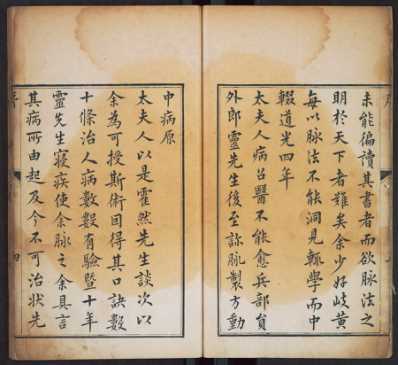 未能徧讀其書者而欲脉法之
明於天下者難矣余少好岐黄
每以脉法不能洞見輒學而中
輟道光四年
太夫人病召醫不能愈兵部員
外郎靈先生後至診脉製方動
中病原
太夫人以是霍然先生談次以
余為可授斯術因得其口訣數
十條治人病數數有驗暨十年
靈先生寢疾使余脉之余具言
其病所由起及今不可治狀先